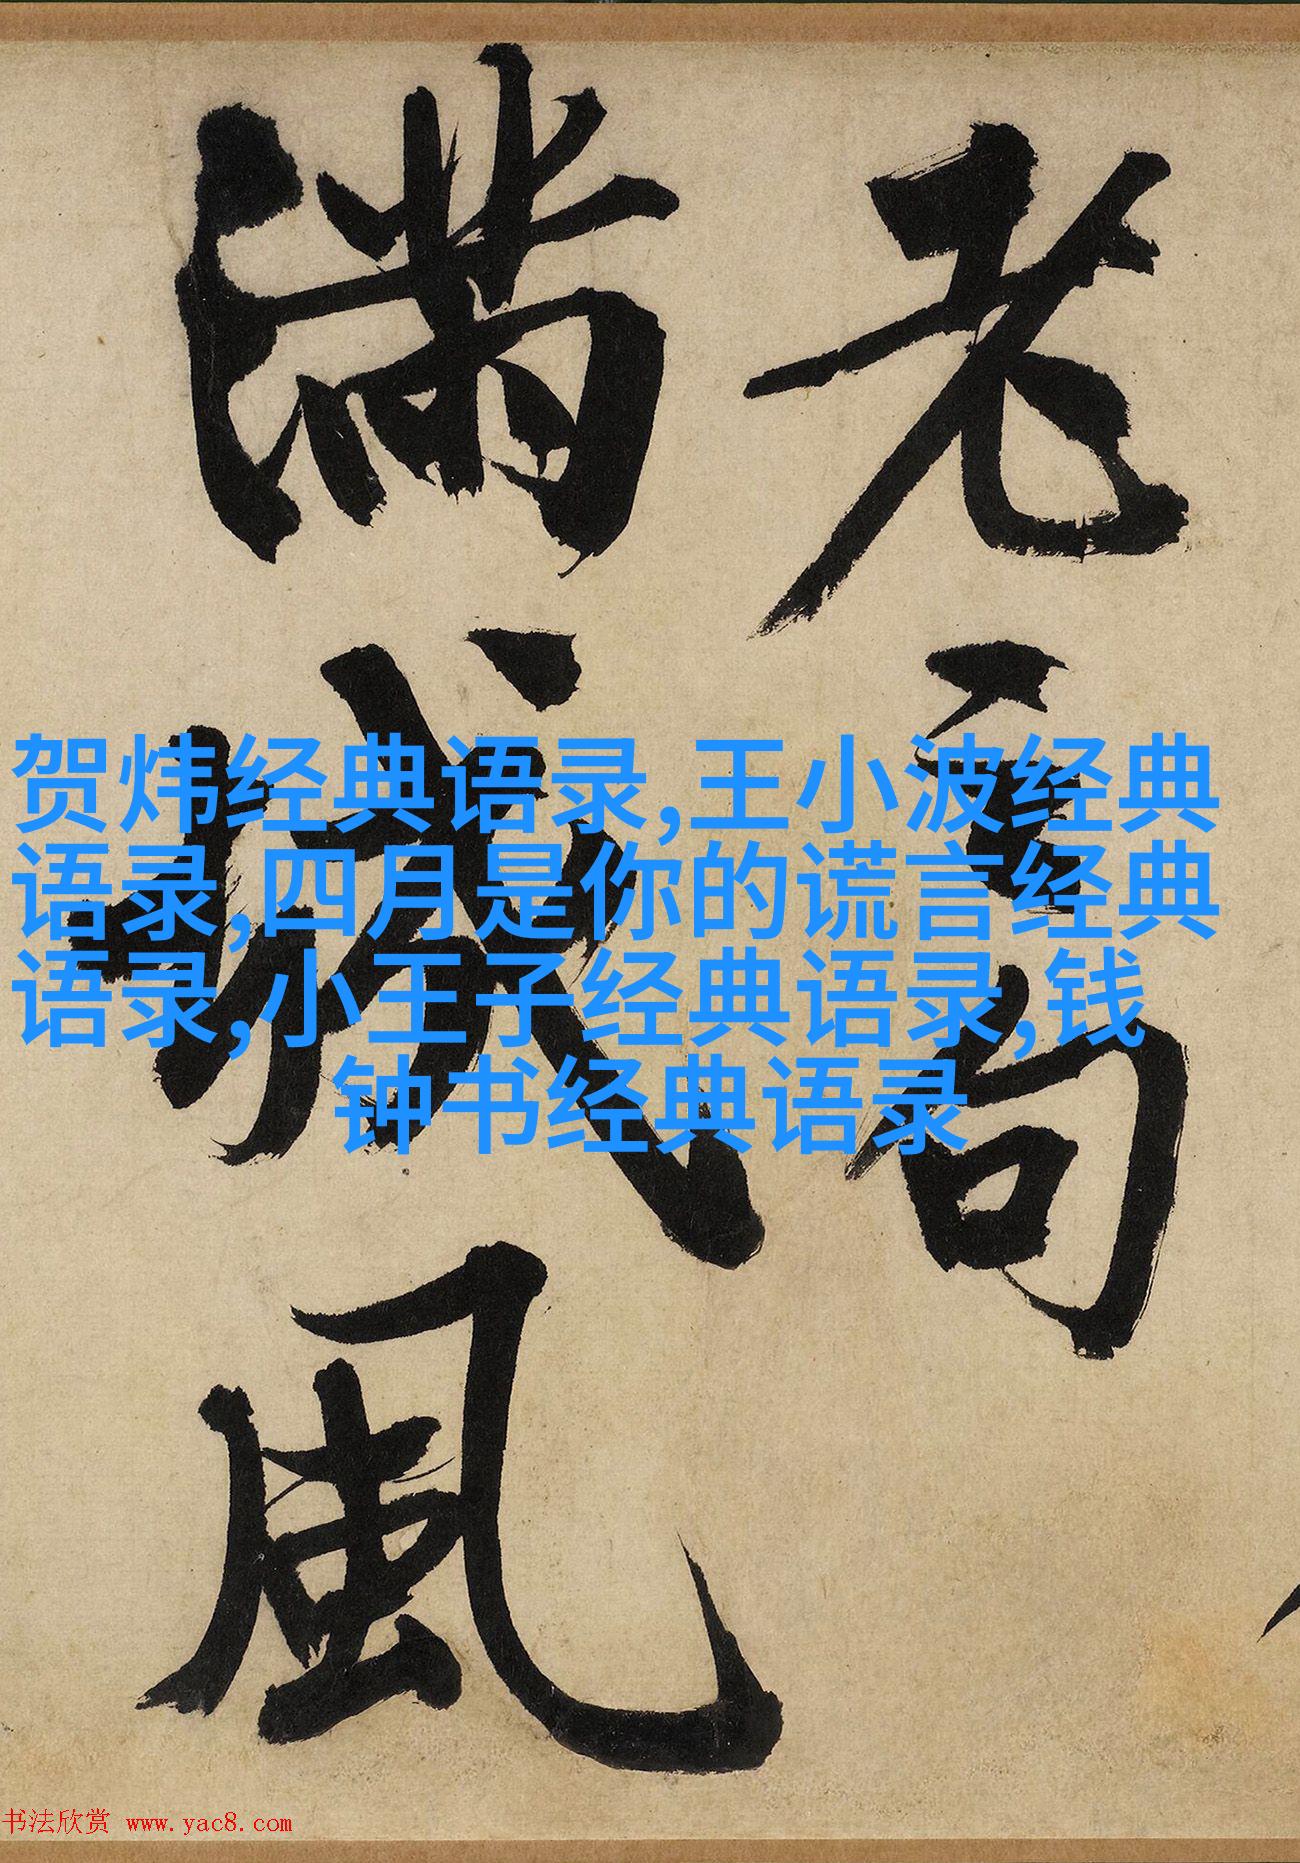 老句
滿城風
贺炜经典语录,王小波经典
语录,四月是你的谎言经典
语录,小王子经典语录,钱
钟书经典语录
书法欣赏 www.yac8.com